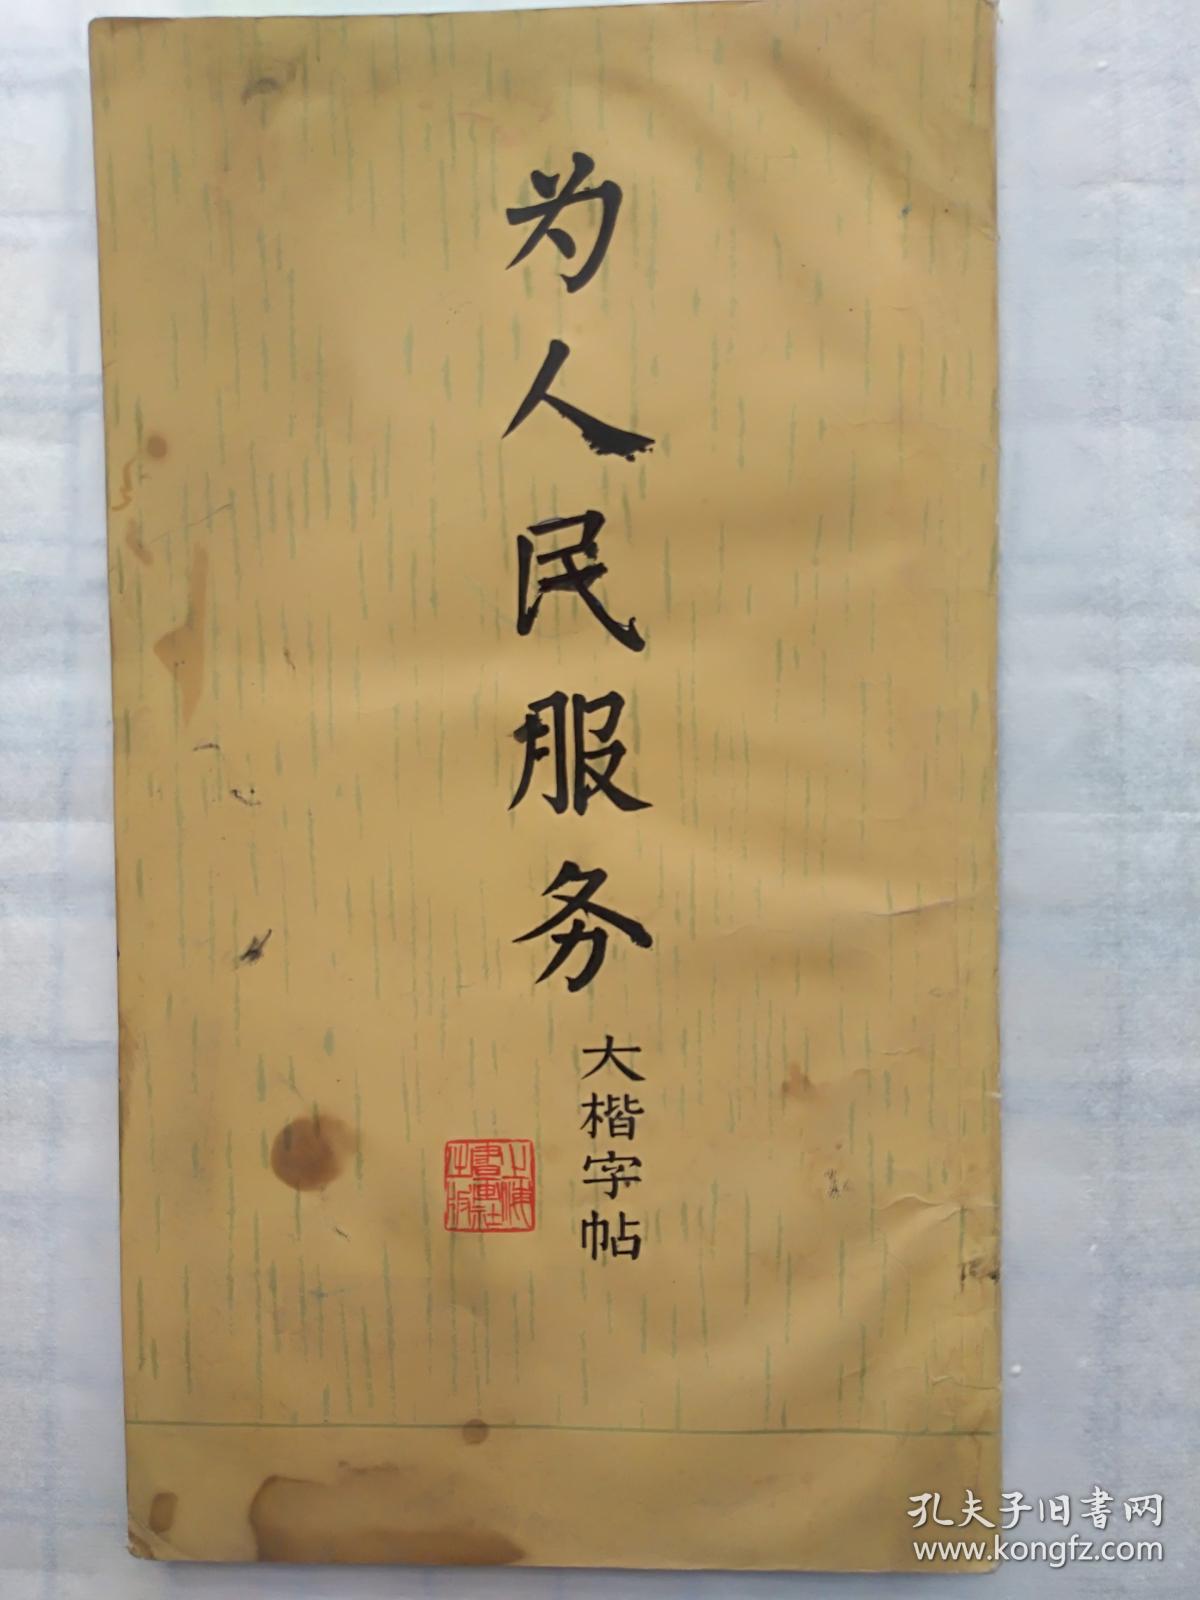 为人民服务
大楷字帖
上海
書画社
出版
孔夫子旧書网
www.kongfz.com